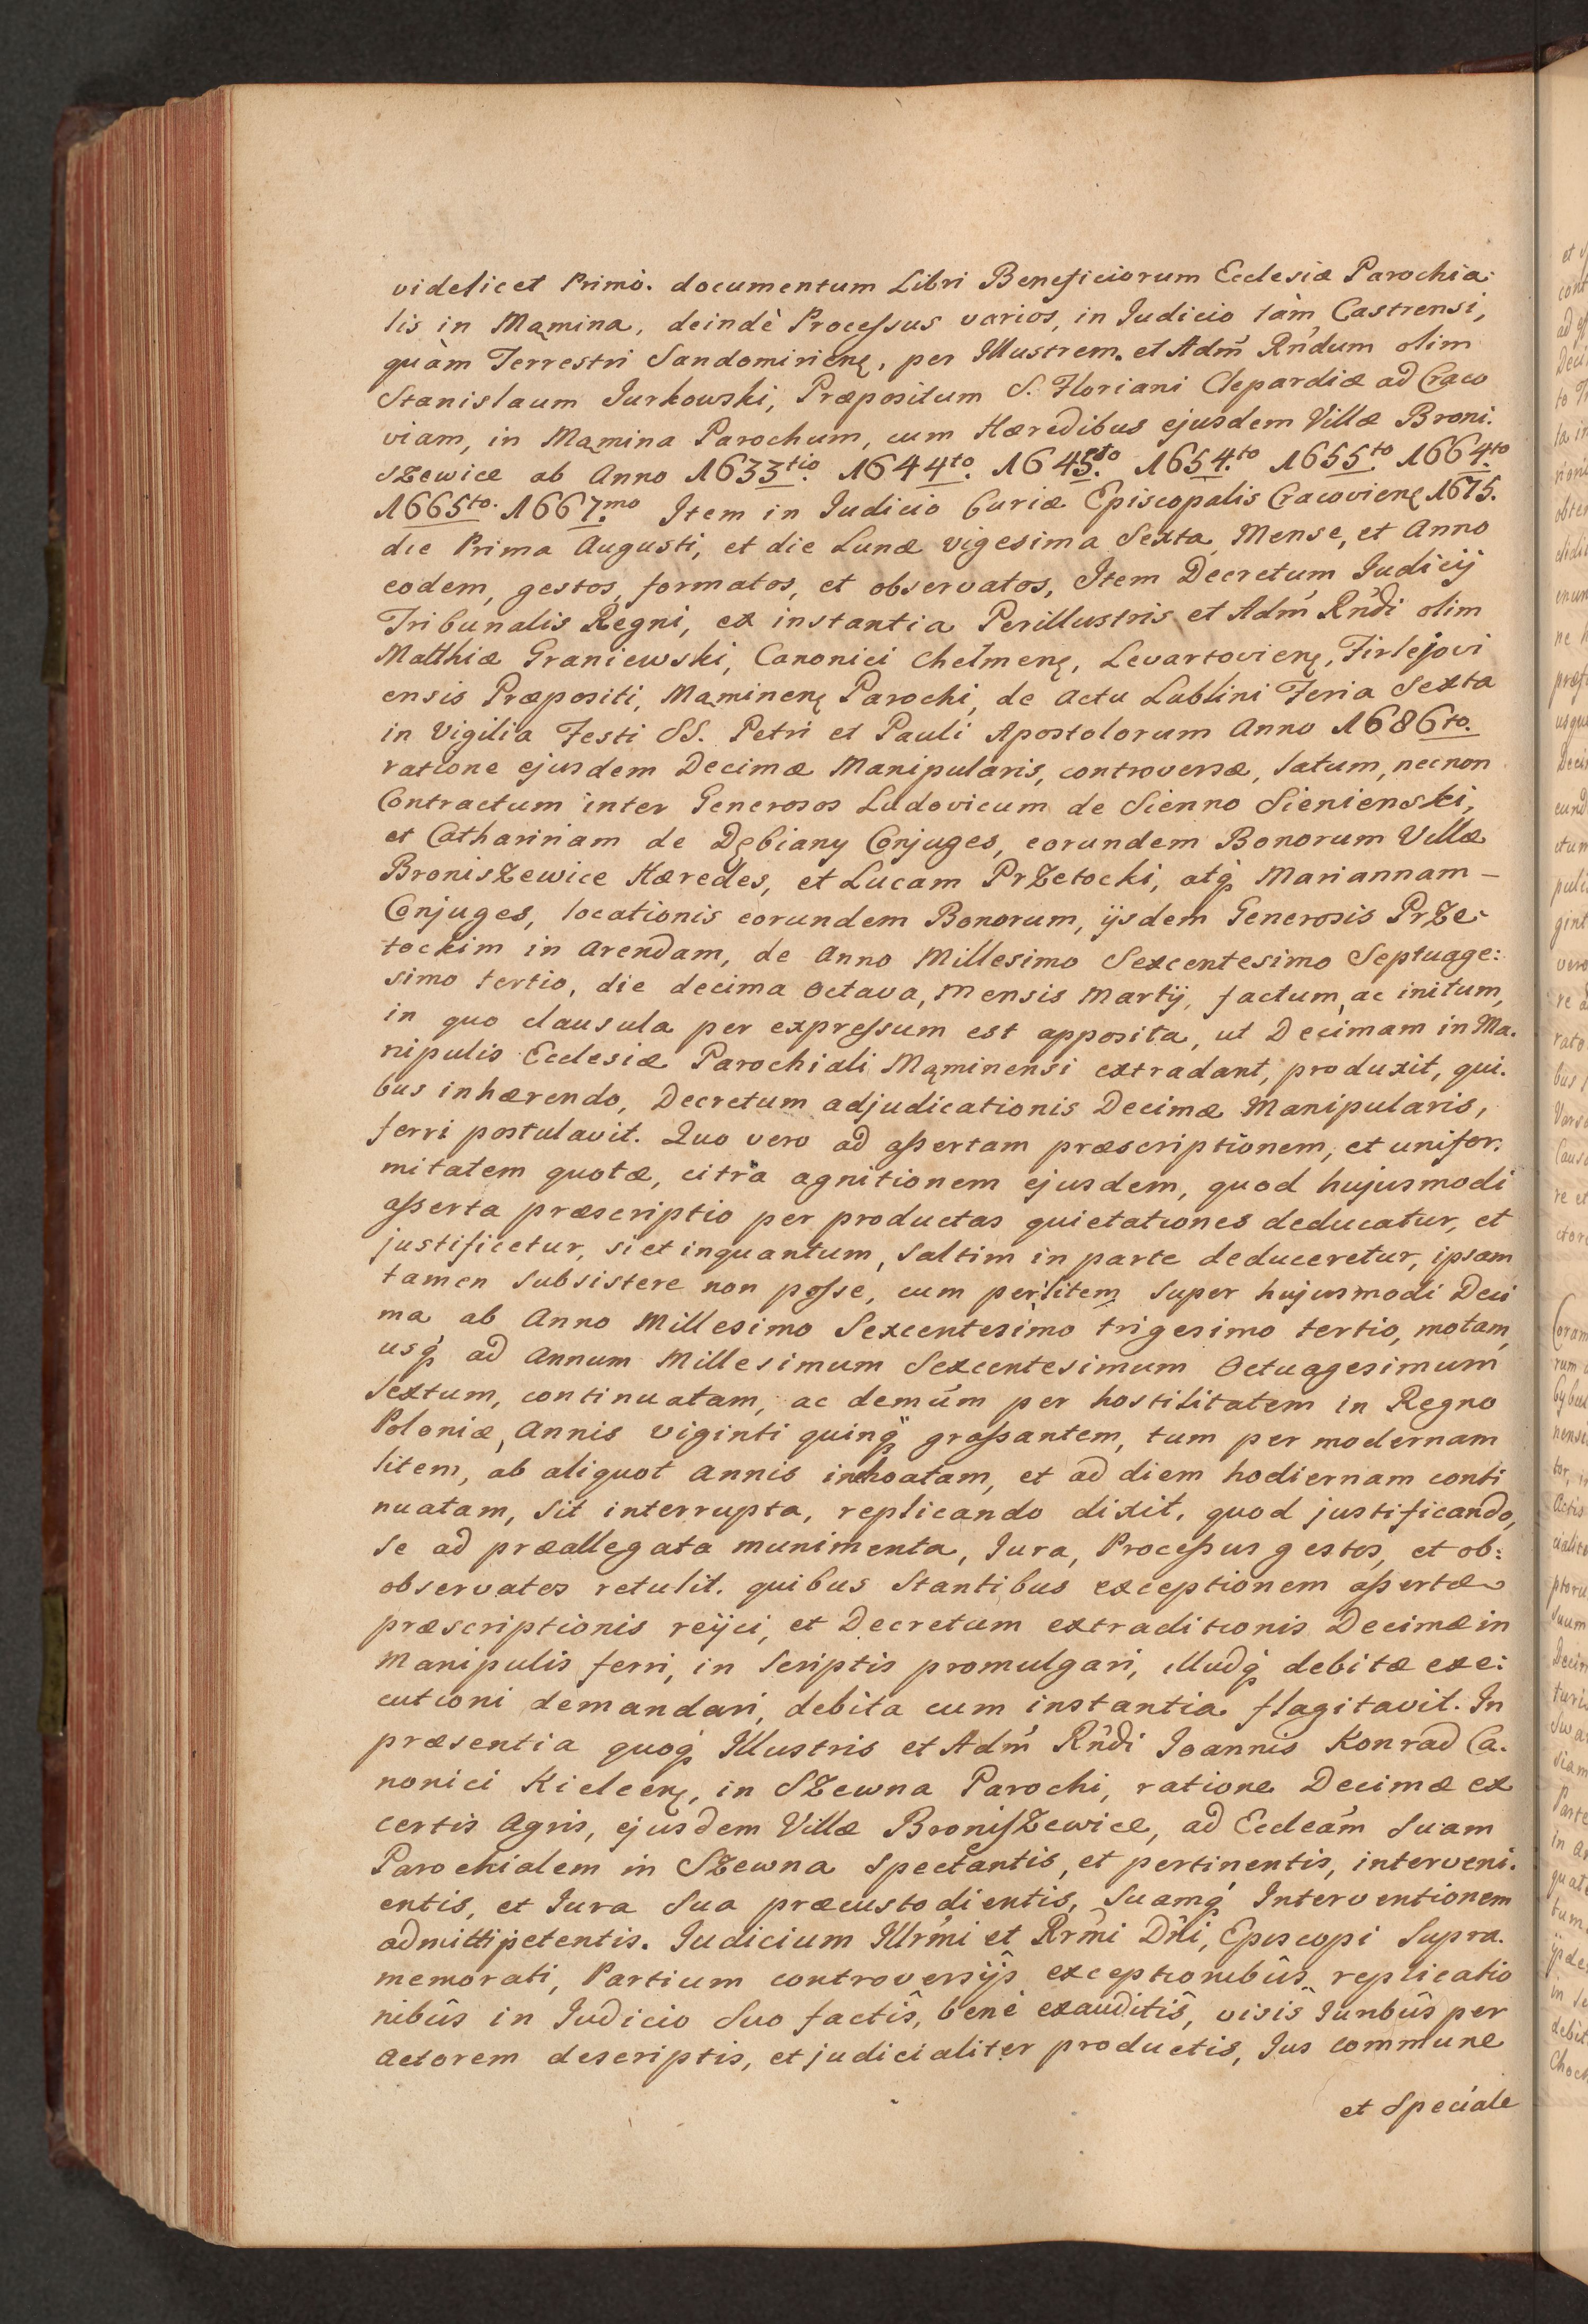 videlicet Primò. documentum Libri Beneficiorum Ecclesiæ Parochia:
lis in Mąmina, deindè Processus varios, in Iudicio tàm Castrensi,
quàm Terrestri Sandomirienę, per Illustrem. et Adm̃ Rńdum olim
Stanislaum Iurkowski, Præpositum S. Floriani Clepardiæ ad Craco
viam, in Mąmina Parochum, cum Hæredibus ejusdem Villæ Broni.
szewice ab Anno 1633tio. 1644to. 1645to. 1654.to 1655to 1664.to
1665to. 1667.mo Item in Iudicio Curiæ Episcopalis Cracovienę 1675.
die Prima Augusti, et die Lunæ vigesima Sexta Mense, et Anno
eodem, gestos, formatos, et observatos, Item Decretum Iudicij
Tribunalis Regni, ex instantia Perillustris et Adm̃ Rńdi olim
Matthiæ Graniewski, Canonici Chelmenę, Levartovienę, Firlejovi
ensis Præpositi, Mąminenę Parochi, de Actu Lublini Feria Sexta
in Vigilia Festi SS. Petri et Pauli Apostolorum Anno 1686to.
ratione ejusdem Decimæ Manipularis, controversæ, latum, necnon
Contractum inter Generosos Ludovicum de Sienno Sienienski,
et Catharinam de Dębiany Conjuges, eorundem Bonorum Villæ
Broniszewice Hæredes, et Lucam Przetocki, atq̃ Mariannam –
Conjuges, locationis eorundem Bonorum, ijsdem Generosis Prze:
tockim in Arendam, de Anno Millesimo Sexcentesimo Septuage:
simo tertio, die decima Octava, Mensis Martij, factum, ac initum,
in quo clausula per expressum est apposita, ut Decimam in Ma.
nipulis Ecclesiæ Parochiali Mąminensi extradant, produxit, qui.
bus inhærendo, Decretum adjudicationis Decimæ Manipularis,
ferri postulavit. Quo vero ad assertam præscriptionem, et unifor:
mitatem quotæ, citra agnitionem ejusdem, quod hujusmodi
asserta præscriptio per productas quietationes deducatur, et
justificetur, si et inquantum, saltim in parte deduceretur, ipsam
tamen subsistere non posse, cum per litem super hujusmodi Deci
ma ab Anno Millesimo Sexcentesimo trigesimo tertio, motam,
usq̃ ad Annum Millesimum Sexcentesimum Octuagesimum
Sextum, continuatam, ac demúm per hostilitatem in Regno
Poloniæ, Annis viginti quinq̃ grassantem, tum per modernam
litem, ab aliquot Annis inchoatam, et ad diem hodiernam conti
nuatam, sit interrupta, replicando dixit, quod justificando,
se ad præallegata munimenta, Iura, Processus gestos, et ob:
observatos retulit. quibus stantibus exceptionem assertæ
præscriptionis reijci, et Decretum extraditionis Decimæ in
Manipulis ferri, in Scriptis promulgari, illudq̃ debitæ exe:
cutioni demandari, debita cum instantia flagitavit. In
præsentia quoq̃ Illustris et Adm̃ Rńdi Ioannis Konrad Ca.
nonici Kielcenę, in Szewna Parochi, ratione Decimæ ex
certis Agris, ejusdem Villæ Broniszewice, ad Eccleám suam
Parochialem in Szewna spectantis, et pertinentis, interveni.
entis, et Iura sua præcustodientis, suamq̃ Interventionem
admitti petentis. Iudicium Illrḿi et Rrḿi Dńi, Episcopi supra.
memorati, Partium controversijs exceptionibûs replicatio
nibûs in Iudicio suo factîs, benè exauditîs, visîs Iuribûs per
Actorem descriptis, et judicialiter productis, Ius commune
et Speciale